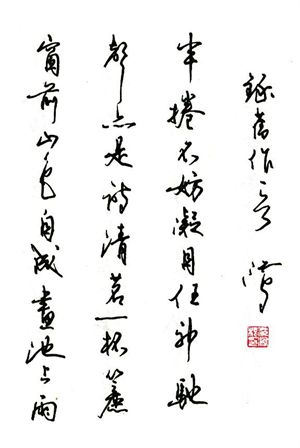 窗前山色自成畫池上雨
聲亦是詩清茗一杯簾
半捲不妨凝目任神馳
錄舊作